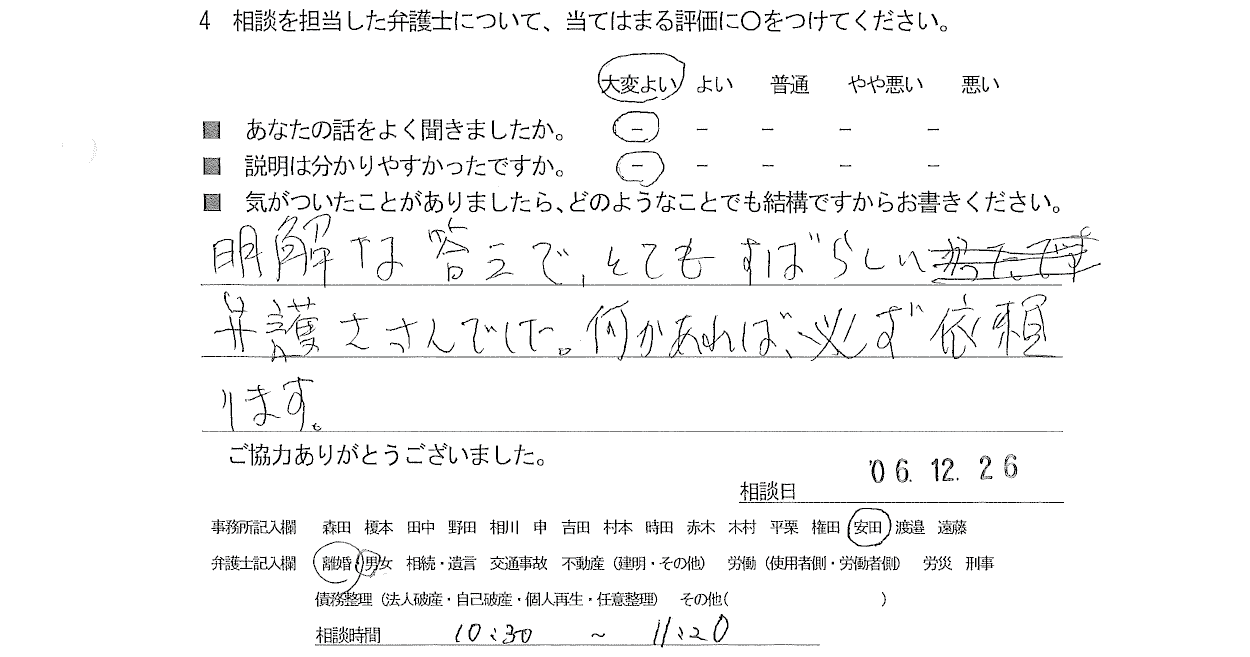 4 相談を担当した弁護士について、当てはまる評価に〇をつけてください。
大変よい よい 普通 やや悪い 悪い
■ あなたの話をよく聞きましたか。 － － － － －
■ 説明は分かりやすかったですか。 － － － － －
■ 気がついたことがありましたら、どのようなことでも結構ですからお書きください。
明解な答えで、とても すばらしい
弁護士さんでした。何かあれば、必ず依頼
ります。
ご協力ありがとうございました。
相談日 '06.12.26
事務所記入欄 森田 榎本 田中 野田 相川 申 吉田 村本 時田 赤木 木村 平栗 権田 安田 渡邉 遠藤
弁護士記入欄 離婚・男女 相続・遺言 交通事故 不動産（建明・その他） 労働（使用者側・労働者側） 労災 刑事
債務整理（法人破産・自己破産・個人再生・任意整理） その他（ ）
相談時間 10:30 ～ 11:20